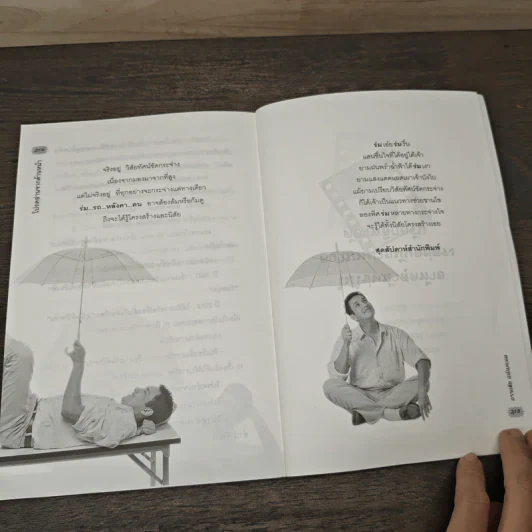 โปรดอ่านจากด้านหน้า
จริงอยู่ วิสัยทัศน์ชัดกระจ่าง
เนื่องจากมองมาจากที่สูง
แต่ไม่จริงอยู่ ที่ทุกอย่างจะกระจ่างแค่ทางเดียว
ร่ม...รถ...หลังคา...คน อาจต้องก้มหรือก้มดู
ถึงจะได้รู้โครงสร้างและนิสัย
ร่ม เอ๋ย ร่มรื่น
แสนชื่นใจที่ได้อยู่ใต้เจ้า
ยามฝนพรำ น้ำฟ้าได้ร่มเงา
ยามแสงแดดแผดเผาเจ้าบังไป
แม้ยามเปรียบวิสัยทัศน์ชัดกระจ่าง
ก็ได้เจ้าเป็นแนวทางช่วยขานไข
มองพิศ ร่ม หลายทางกระจ่างใจ
จะรู้ได้ทั้งนิสัยโครงสร้างเอย
สุดสัปดาห์สำนักพิมพ์